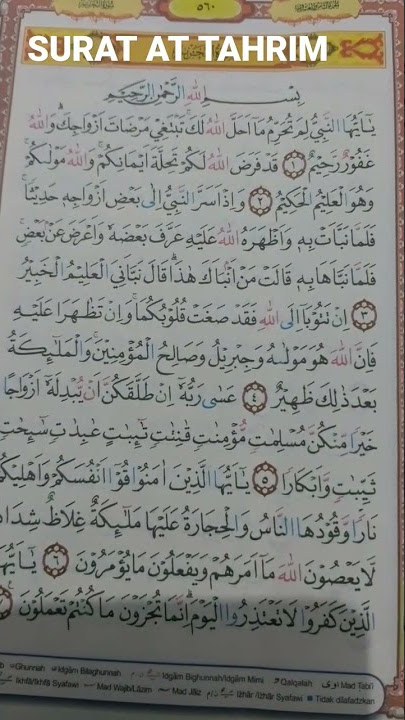 ٥٦٠
SURAT AT TAHRIM
بِسْمِ اللهِ الرَّحْمٰنِ الرَّحِيْمِ
يٰٓاَيُّهَا النَّبِيُّ لِمَ تُحَرِّمُ مَآ اَحَلَّ اللهُ لَكَۚ تَبْتَغِيْ مَرْضَاتَ اَزْوَاجِكَۗ وَاللهُ
غَفُوْرٌ رَّحِيْمٌ ١ قَدْ فَرَضَ اللهُ لَكُمْ تَحِلَّةَ اَيْمَانِكُمْۚ وَاللهُ مَوْلٰىكُمْۚ
وَهُوَ الْعَلِيْمُ الْحَكِيْمُ ٢ وَاِذْ اَسَرَّ النَّبِيُّ اِلٰى بَعْضِ اَزْوَاجِهٖ حَدِيْثًاۚ
فَلَمَّا نَبَّاَتْ بِهٖ وَاَظْهَرَهُ اللهُ عَلَيْهِ عَرَّفَ بَعْضَهٗ وَاَعْرَضَ عَنْۢ بَعْضٍۚ
فَلَمَّا نَبَّاَهَا بِهٖ قَالَتْ مَنْ اَنْۢبَاَكَ هٰذَاۗ قَالَ نَبَّاَنِيَ الْعَلِيْمُ الْخَبِيْرُ
٣ اِنْ تَتُوْبَآ اِلَى اللهِ فَقَدْ صَغَتْ قُلُوْبُكُمَاۚ وَاِنْ تَظٰهَرَا عَلَيْهِ
فَاِنَّ اللهَ هُوَ مَوْلٰىهُ وَجِبْرِيْلُ وَصَالِحُ الْمُؤْمِنِيْنَۚ وَالْمَلٰۤىِٕكَةُ
بَعْدَ ذٰلِكَ ظَهِيْرٌ ٤ عَسٰى رَبُّهٗٓ اِنْ طَلَّقَكُنَّ اَنْ يُّبْدِلَهٗٓ اَزْوَاجًا
خَيْرًا مِّنْكُنَّ مُسْلِمٰتٍ مُّؤْمِنٰتٍ قٰنِتٰتٍ تٰۤىِٕبٰتٍ عٰبِدٰتٍ سٰۤىِٕحٰتٍ
ثَيِّبٰتٍ وَّاَبْكَارًا ٥ يٰٓاَيُّهَا الَّذِيْنَ اٰمَنُوْا قُوْٓا اَنْفُسَكُمْ وَاَهْلِيْكُمْ
نَارًا وَّقُوْدُهَا النَّاسُ وَالْحِجَارَةُ عَلَيْهَا مَلٰۤىِٕكَةٌ غِلَاظٌ شِدَادٌ
لَّا يَعْصُوْنَ اللهَ مَآ اَمَرَهُمْ وَيَفْعَلُوْنَ مَا يُؤْمَرُوْنَ ٦ يٰٓاَيُّهَا
الَّذِيْنَ كَفَرُوْا لَا تَعْتَذِرُوا الْيَوْمَۗ اِنَّمَا تُجْزَوْنَ مَا كُنْتُمْ تَعْمَلُوْنَ
Ghunnah Idgām Bilaghunnah Idgām Bighunnah/Idgām Mimi Qalqalah Mad Ṭabi'i
Ikhfā'/Ikhfā Syafawi Mad Wajib/Lāzim Mad Jāiz Izhār/Izhār Syafawi Tidak dilafadzkan